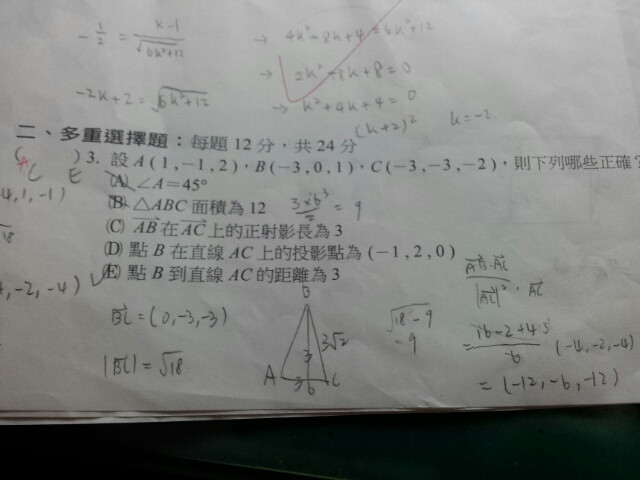 -1/2 = k-1/√6k²+12 → 4k²-8k+4=6k²+12
→ 2k²-8k+8=0
-2k+2=√6k²+12 → k²+4k+4=0
(k+2)² k=-2
二、多重選擇題：每題 12 分，共 24 分
( )3. 設 A(1,-1,2)，B(-3,0,1)，C(-3,-3,-2)，則下列哪些正確？
C E
(A) ∠A=45°
4,1,-1)
(B) △ABC 面積為 12
√18
(C) AB 在 AC 上的正射影長為 3
(D) 點 B 在直線 AC 上的投影點為 (-1,2,0)
(E) 點 B 到直線 AC 的距離為 3
-2,-4)
AB·AC/|AC|²·AC
BC=(0,-3,-3)
B
√18-9
-9
3√2
3
|BC|=√18
A 3 6 C
=16-2+4/6 (-4,-2,-4)
=(-12,-6,-12)